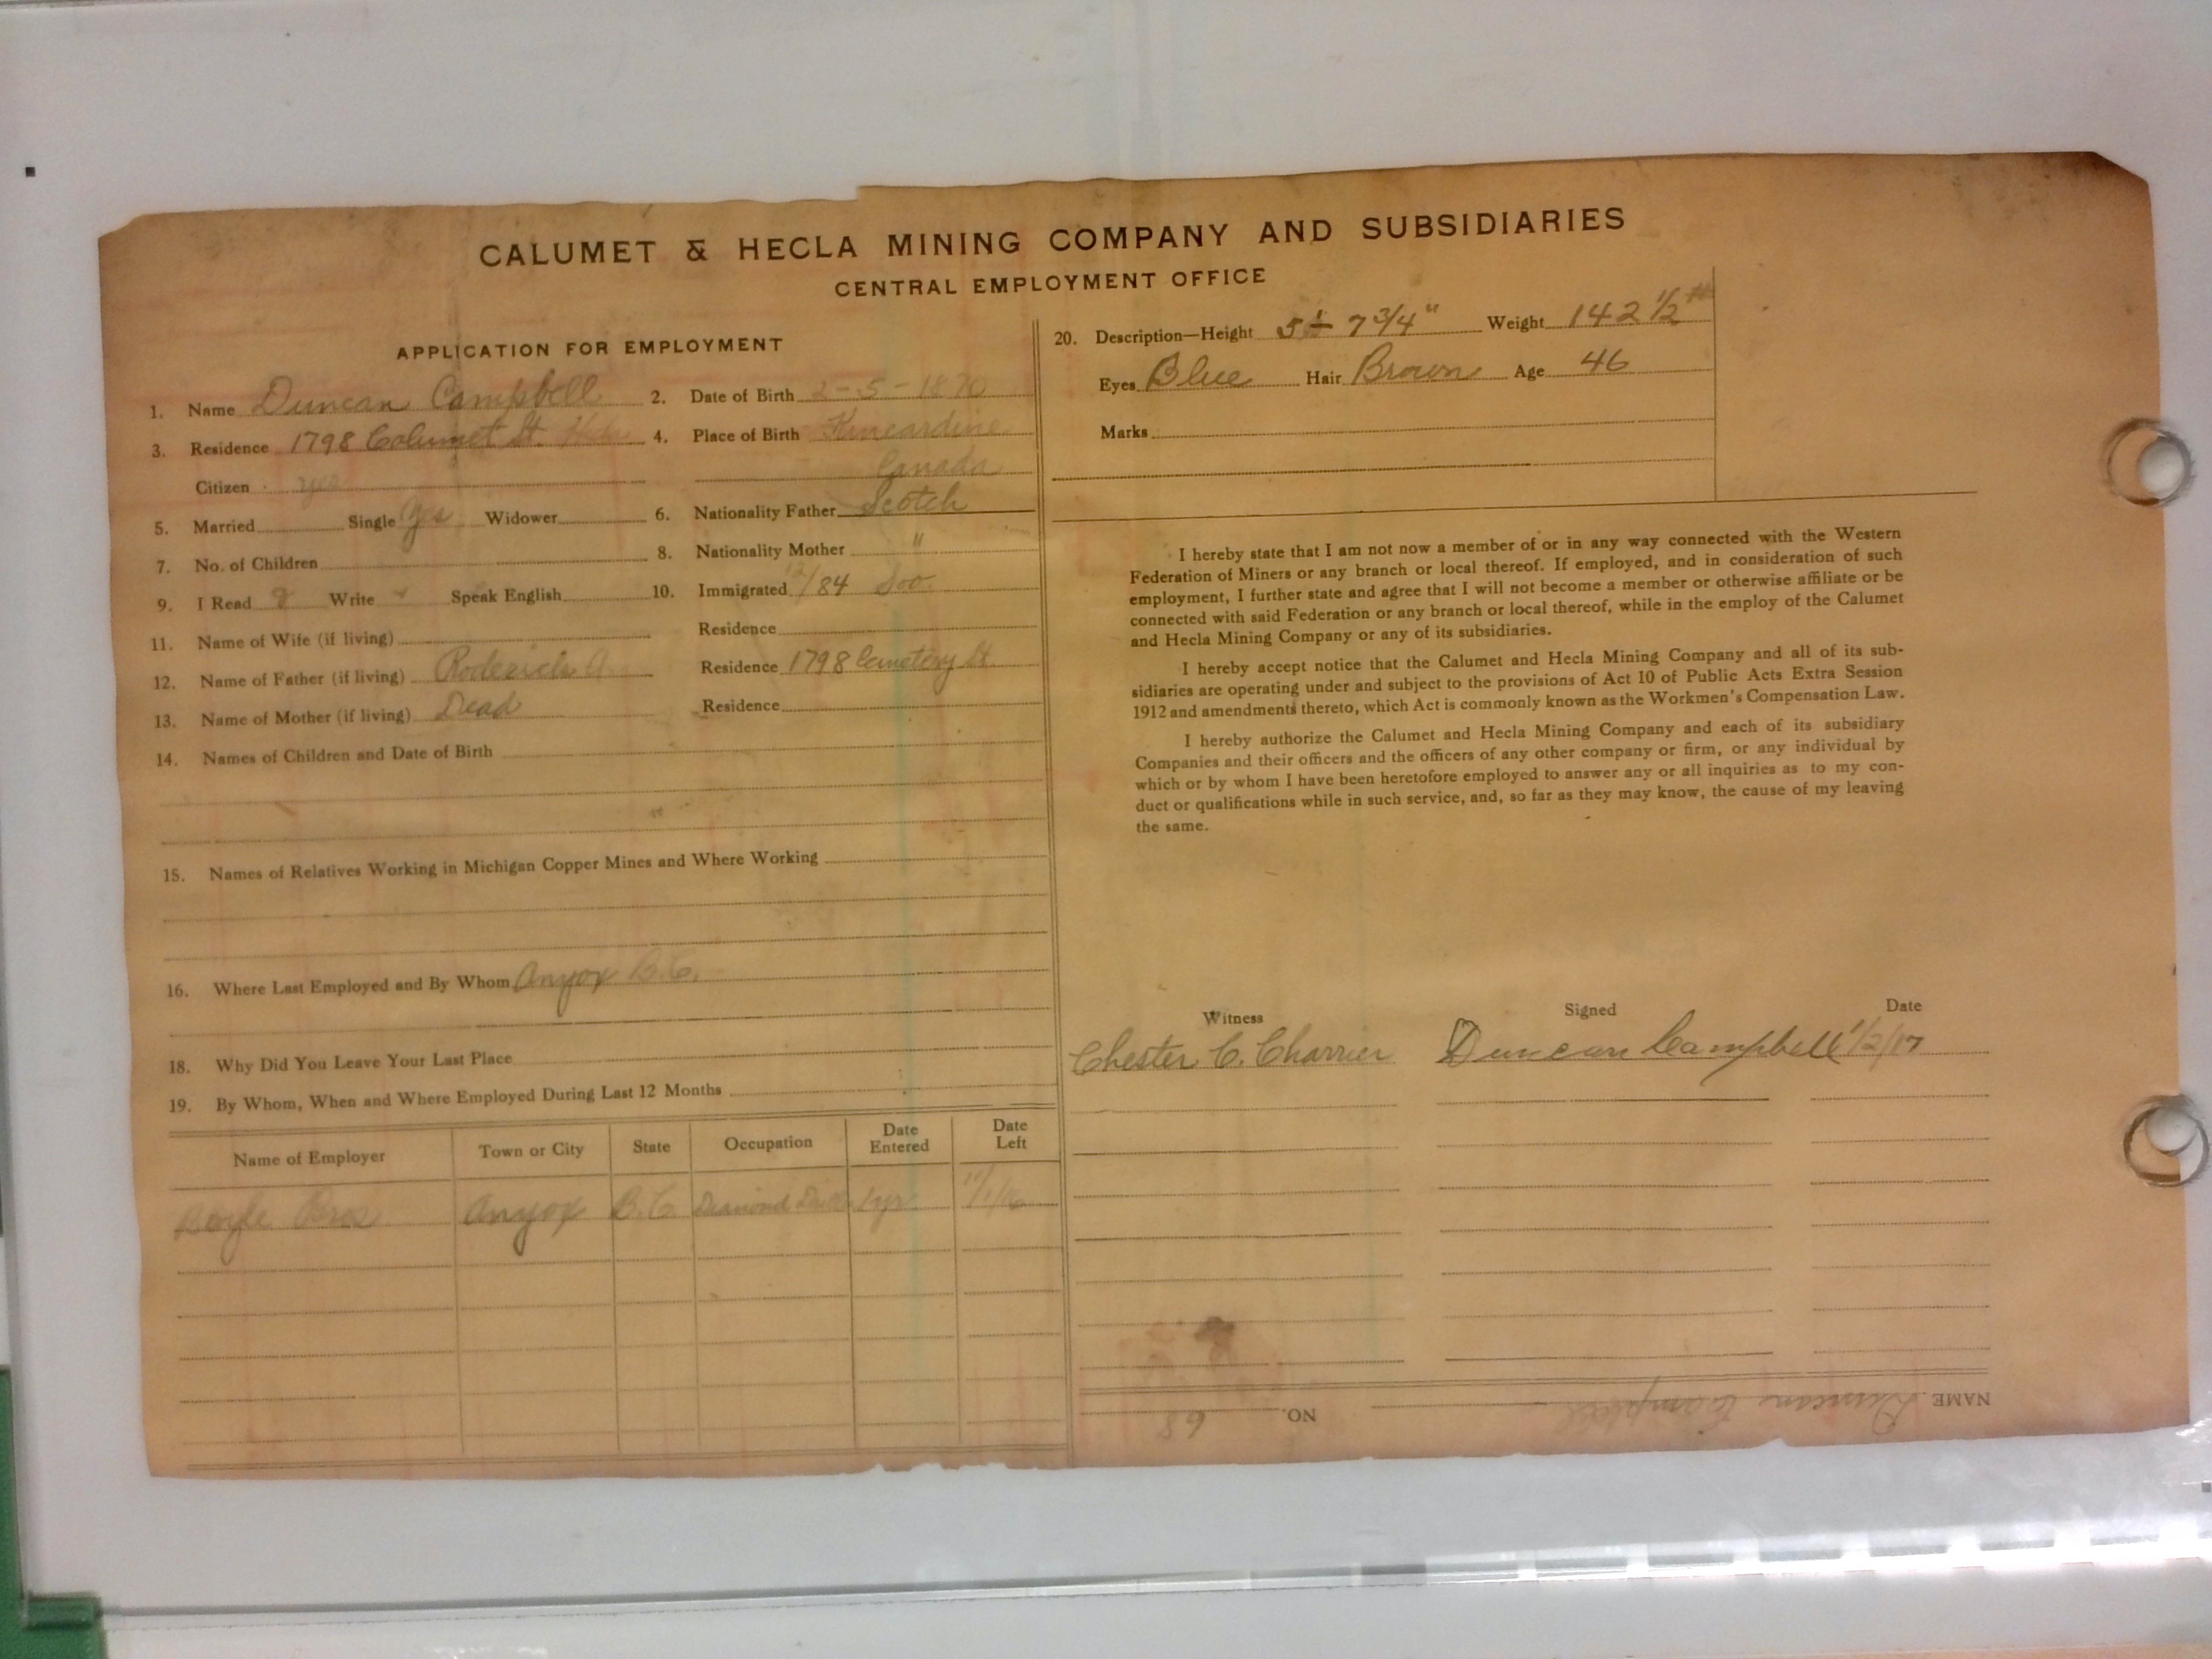 CALUMET & HECLA MINING COMPANY AND SUBSIDIARIES
CENTRAL EMPLOYMENT OFFICE
APPLICATION FOR EMPLOYMENT
1. Name Duncan Campbell 2. Date of Birth 2-5-1870
3. Residence 1798 Calumet St. 4. Place of Birth Kincardine
Citizen yes Canada
5. Married Single yes Widower 6. Nationality Father Scotch
7. No. of Children 8. Nationality Mother "
9. I Read Write Speak English 10. Immigrated 12/84 Soo
11. Name of Wife (if living) Residence
12. Name of Father (if living) Roderick A. Residence 1798 Cemetery St.
13. Name of Mother (if living) Dead Residence
14. Names of Children and Date of Birth
15. Names of Relatives Working in Michigan Copper Mines and Where Working
16. Where Last Employed and By Whom Anyox B.C.
18. Why Did You Leave Your Last Place
19. By Whom, When and Where Employed During Last 12 Months
Name of Employer Town or City State Occupation Date Entered Date Left
Boyle Bros Anyox B.C. Diamond 1 yr. 11/1/16
20. Description—Height 5' 7 3/4" Weight 142 1/2 #
Eyes Blue Hair Brown Age 46
Marks
I hereby state that I am not now a member of or in any way connected with the Western
Federation of Miners or any branch or local thereof. If employed, and in consideration of such
employment, I further state and agree that I will not become a member or otherwise affiliate or be
connected with said Federation or any branch or local thereof, while in the employ of the Calumet
and Hecla Mining Company or any of its subsidiaries.
I hereby accept notice that the Calumet and Hecla Mining Company and all of its sub-
sidiaries are operating under and subject to the provisions of Act 10 of Public Acts Extra Session
1912 and amendments thereto, which Act is commonly known as the Workmen's Compensation Law.
I hereby authorize the Calumet and Hecla Mining Company and each of its subsidiary
Companies and their officers and the officers of any other company or firm, or any individual by
which or by whom I have been heretofore employed to answer any or all inquiries as to my con-
duct or qualifications while in such service, and, so far as they may know, the cause of my leaving
the same.
Witness Signed Date
Chester C. Charrier Duncan Campbell 1/2/17
NAME Duncan Campbell NO. 89